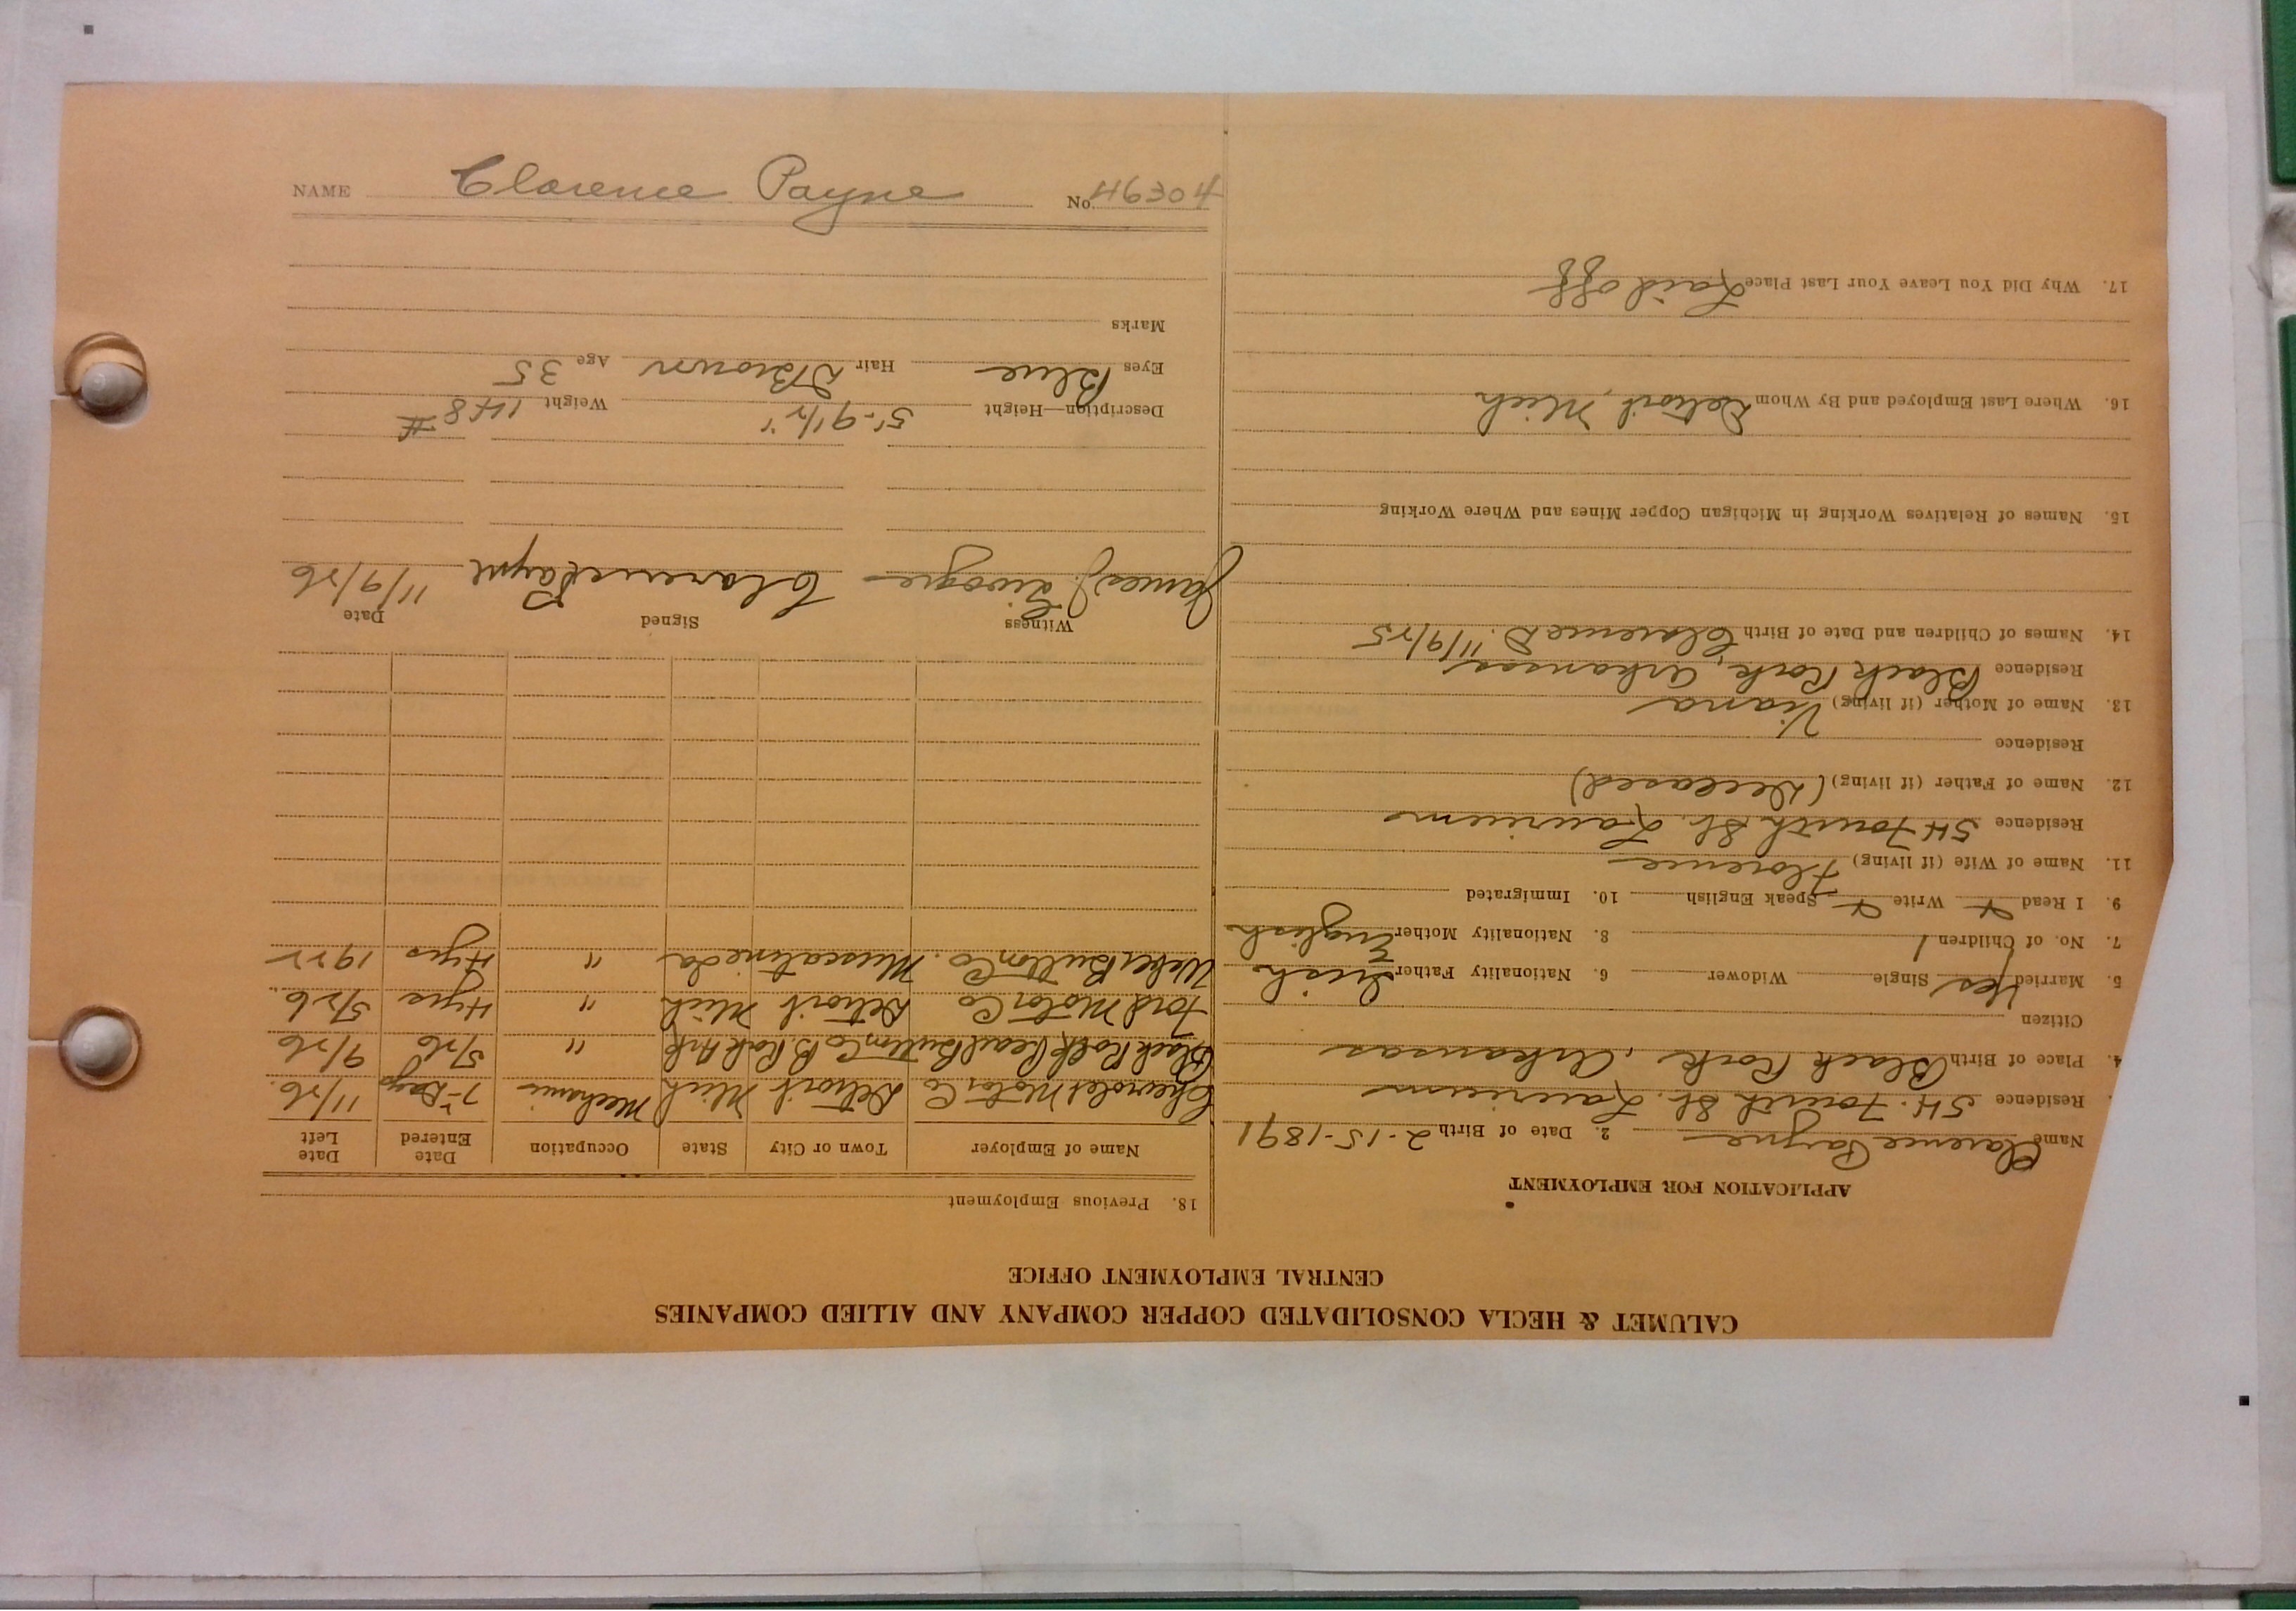 CALUMET & HECLA CONSOLIDATED COPPER COMPANY AND ALLIED COMPANIES
CENTRAL EMPLOYMENT OFFICE
APPLICATION FOR EMPLOYMENT
Name Clarence Payne 2. Date of Birth 2-15-1891
Residence 54. Fourth St. Laurium
4. Place of Birth Black Rock, Arkansas
Citizen
5. Married Yes Single Widower 6. Nationality Father Irish
7. No. of Children 1 8. Nationality Mother English
9. I Read Write Speak English 10. Immigrated
11. Name of Wife (if living) Florence
Residence 54 Fourth St. Laurium
12. Name of Father (if living) (Deceased)
Residence
13. Name of Mother (if living) Viana
Residence Black Rock, Arkansas
14. Names of Children and Date of Birth Clarence D. 11/9/25
15. Names of Relatives Working in Michigan Copper Mines and Where Working
16. Where Last Employed and By Whom Detroit, Mich
17. Why Did You Leave Your Last Place Laid off
18. Previous Employment
Name of Employer Town or City State Occupation Date Entered Date Left
Chevrolet Motor Co Detroit Mich Mechanic 7-Days 11/26.
Black Rock Pearl Button Co B. Rock Ark " 5/26 9/26
Ford Motor Co Detroit Mich " 4yrs 5/26.
Weber Button Co. Muscatine Ia " 4yrs 1922
Witness Signed Date
James J. Clarence Payne 11/9/26
Description—Height 5'-9 1/2" Weight 148 #
Eyes Blue Hair D Brown Age 35
Marks
NAME Clarence Payne No. 46304